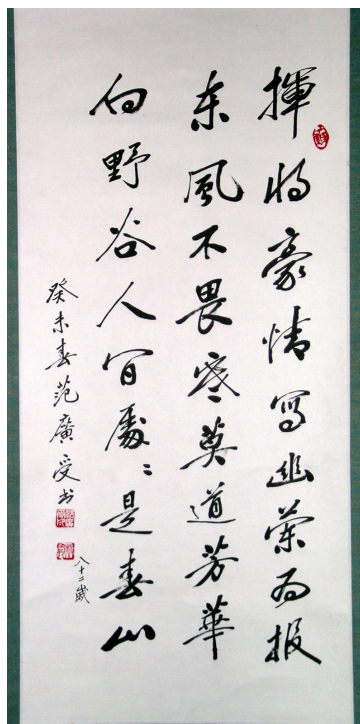 揮將豪情寫幽蘭為报
东風不畏寒莫道芳華
向野谷人间處々是春山
癸未春范廣受书
八十二歲